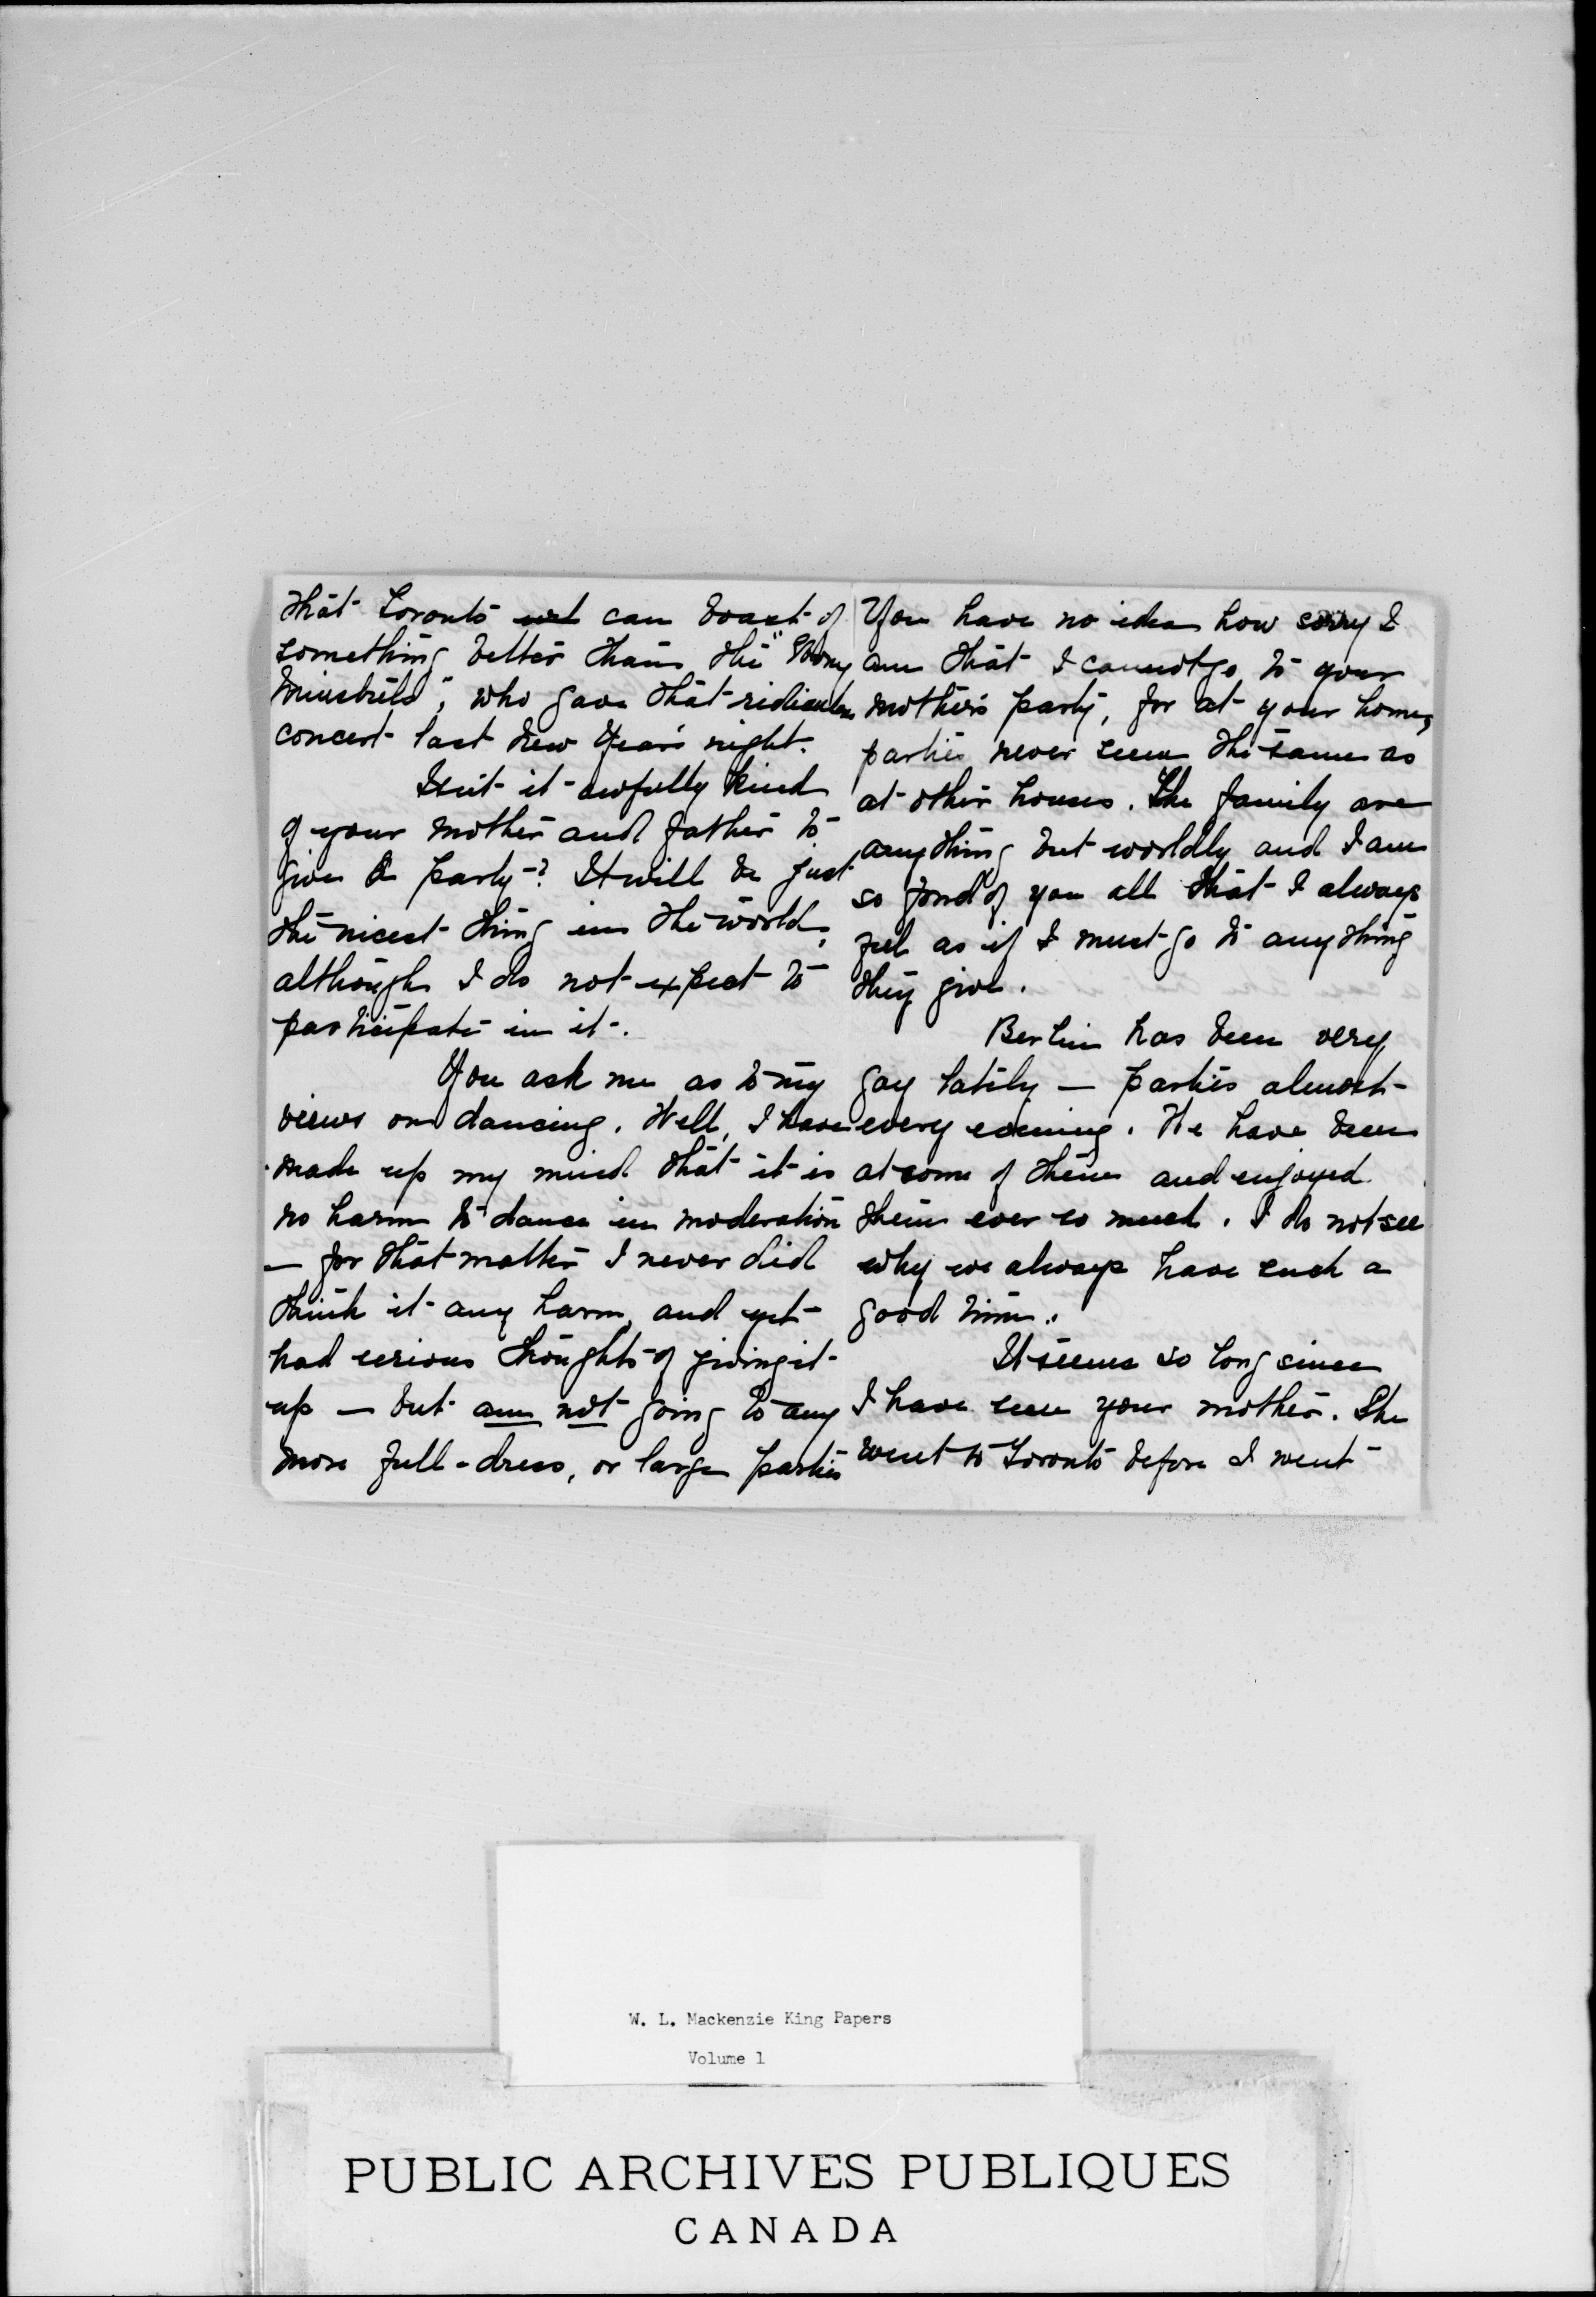 that Toronto can boast of
something better than the "Ebony
Minstrels", who gave that ridiculous
concert last New Year's night.
Isn't it awfully kind
of your mother and father to
give a party? It will be just
the nicest thing in the world,
although I do not expect to
participate in it.
You ask me as to my
views on dancing. Well, I have
made up my mind that it is
no harm to dance in moderation
— for that matter I never did
think it any harm, and yet
had serious thoughts of giving it
up — but am not going to any
more full-dress, or large parties
You have no idea how sorry I
am that I cannot go to your
mother's party, for at your home,
parties never seem the same as
at other houses. The family are
anything but worldly and I am
so fond of you all that I always
feel as if I must go to anything
they give.
Berlin has been very
gay lately — parties almost
every evening. We have been
at some of them and enjoyed
them ever so much. I do not see
why we always have such a
good time.
It seems so long since
I have seen your mother. She
went to Toronto before I went
W. L. Mackenzie King Papers
Volume 1
PUBLIC ARCHIVES PUBLIQUES
CANADA